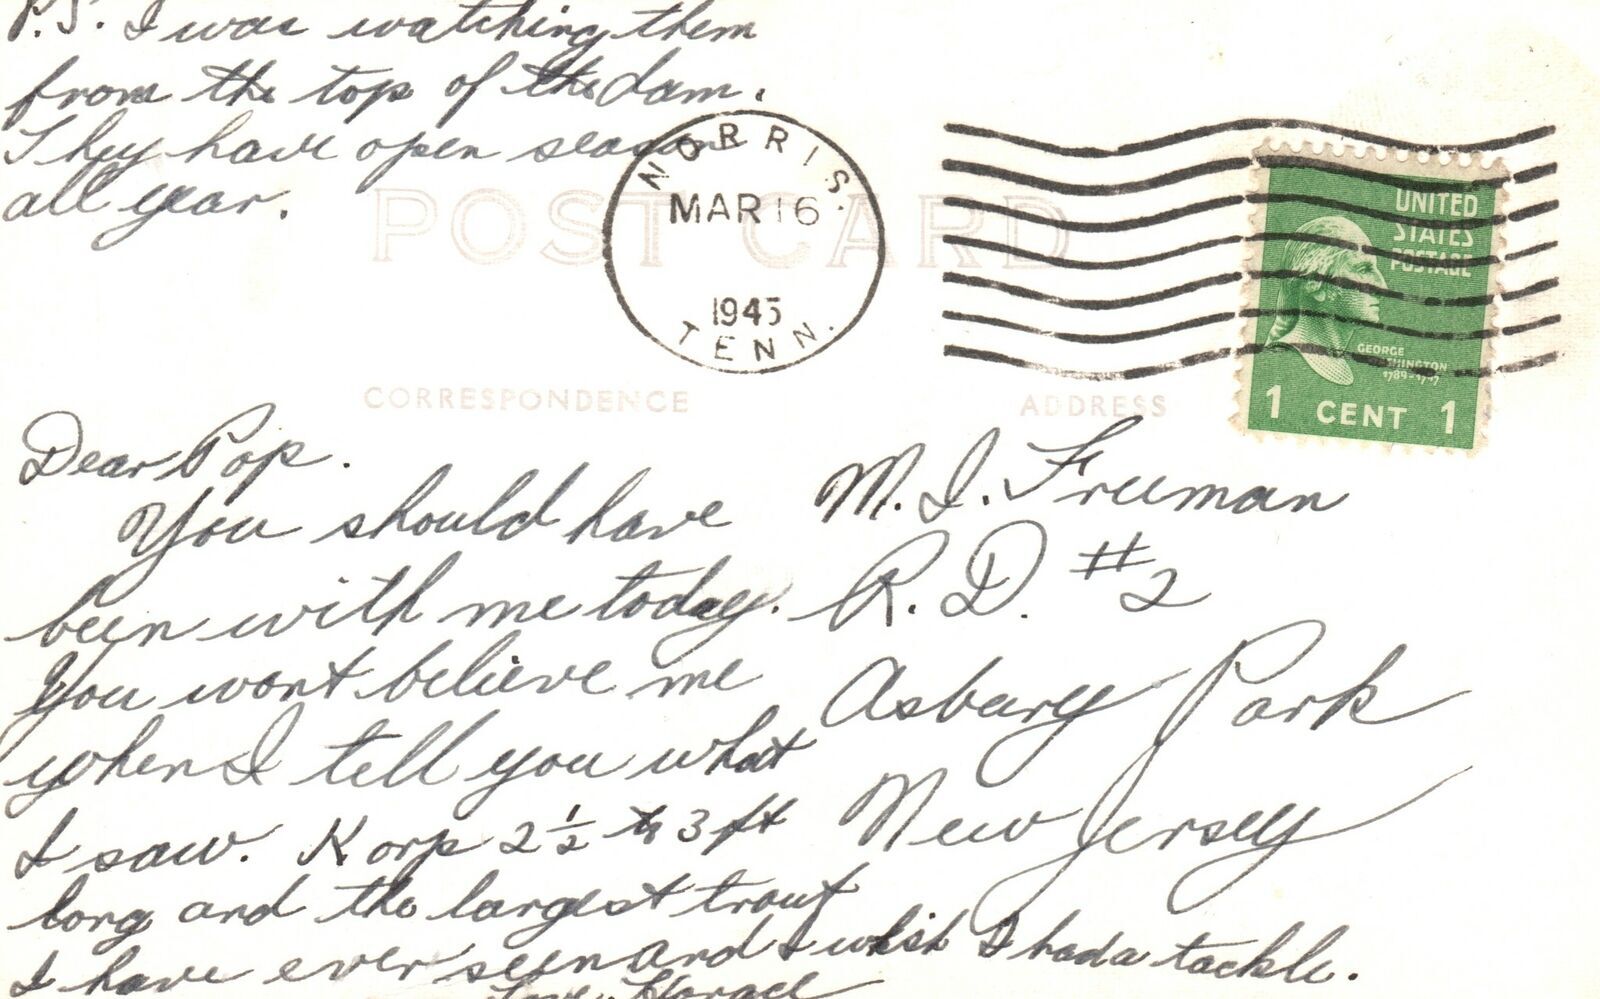 P.S. I was watching them
from the top of the dam.
They have open season
all year.
POST CARD
NORRIS.
MAR 16
1945
TENN.
UNITED
STATES
POSTAGE
GEORGE
WASHINGTON
1789-1797
1 CENT 1
CORRESPONDENCE
ADDRESS
Dear Pop.
You should have
been with me today.
You wont believe me
when I tell you what
I saw. Korp 2 1/2 to 3 ft
long and the largest trout
I have ever seen and I whish I had a tackle.
Love, Horace
M. I. Freeman
R. D. #2
Asbury Park
New Jersey